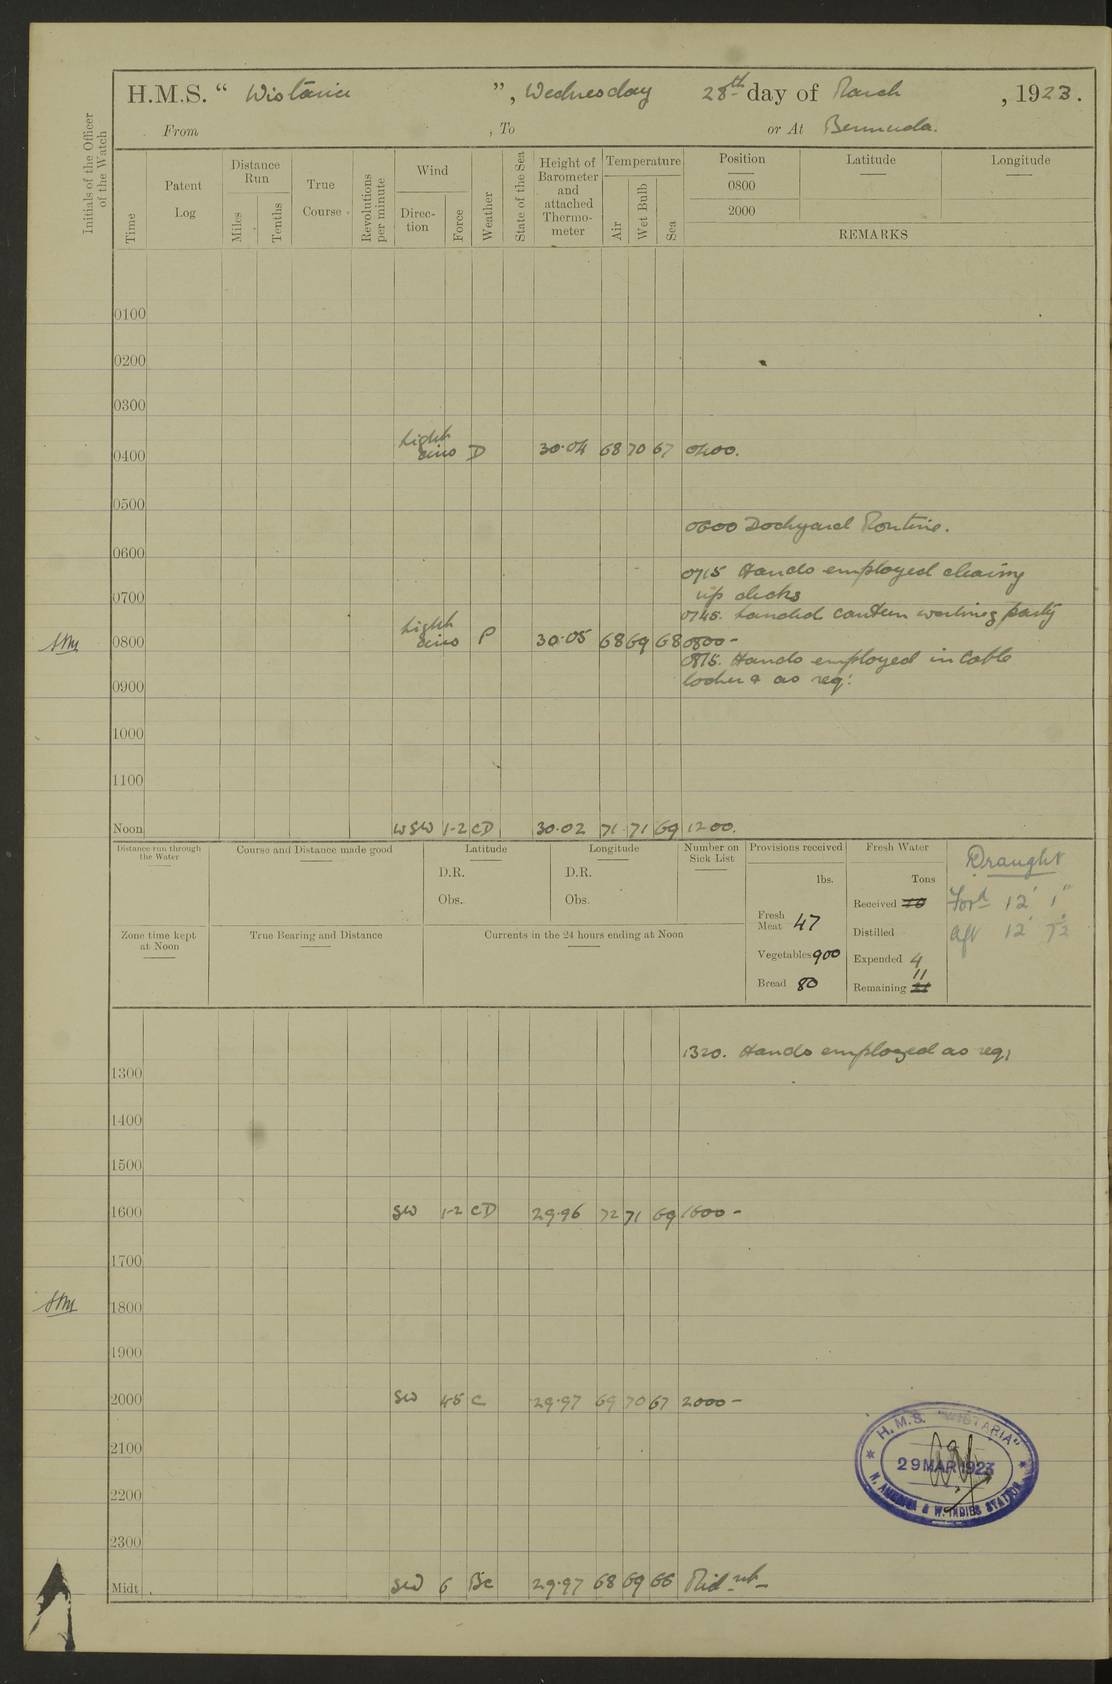 H.M.S. “ Wistaria ”, Wednesday 28th day of March , 1923.
From , To or At Bermuda.
Initials of the Officer of the Watch
Time
Patent Log
Distance Run
Miles
Tenths
True Course
Revolutions per minute
Wind
Direc-tion
Force
Weather
State of the Sea
Height of Barometer and attached Thermo-meter
Temperature
Air
Wet Bulb
Sea
Position
0800
2000
Latitude
Longitude
REMARKS
0100
0200
0300
0400 Light airs D 30.04 68 70 67 0400.
0500
0600 Dockyard Routine.
0600
0715 Hands employed cleaning
up decks
0700
0745. Landed canteen working party
0800 Light airs P 30.05 68 69 68 0800 -
0815. Hands employed in Cable
locker & as req:
0900
1000
1100
Noon WSW 1-2 CD 30.02 71 71 69 1200.
Distance run through the Water
Course and Distance made good
Latitude
D.R.
Obs.
Longitude
D.R.
Obs.
Number on Sick List
Provisions received
lbs.
Fresh Meat 47
Vegetables 900
Bread 80
Fresh Water
Tons
Received 10
Distilled
Expended 4
11
Remaining
Draught
Ford 12' 1"
Aft 12' 7½
Zone time kept at Noon
True Bearing and Distance
Currents in the 24 hours ending at Noon
1320. Hands employed as req:
1300
1400
1500
1600 SW 1-2 CD 29.96 72 71 69 1600 -
1700
1800
1900
2000 SW 4-5 C 29.97 69 70 67 2000 -
2100
2200
2300
Midt. SW 6 BC 29.97 68 69 66 Mid nt -
H.M.S. "WISTARIA"
29 MAR 1923
N. AMERICA & W. INDIES STATION